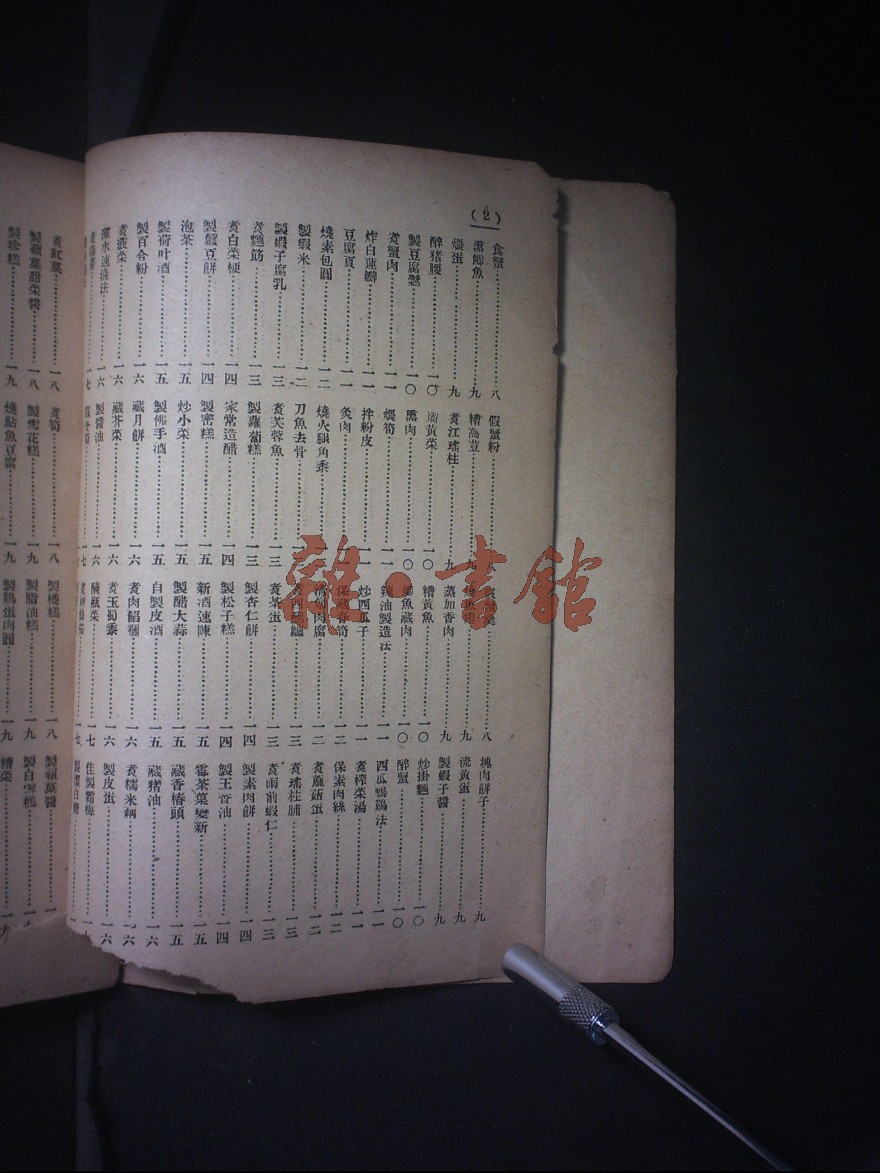 (2)
食蟹…八 假蟹粉… …八 塊肉餅子…九
燻鯽魚…九 糟為荳…九 …九 流黃蛋…九
煨蛋…九 煮江瑤柱…九 蒸加香肉…九 製蝦子醬…九
醉豬腰…一〇 溜黃菜…一〇 糟黃魚…一〇 炒掛麵…一〇
製豆腐鬆…一〇 燻肉…一〇 魚藏肉…一〇 醉蟹…一〇
煮蟹肉…一一 煨筍…一一 辣油製造法…一一 西瓜鴨鷄法…一一
炸白蓮瓣…一一 拌粉皮…一一 炒西瓜子…一一 煮榨菜湯…一一
豆腐頁…一一 灸肉… 保藏春筍…一二 保素肉絲…一二
燒素包圓…一二 燒火腿角黍… 肉腐…一二 煮蘑菇蛋…一二
製蝦米…一二 刀魚去骨… 煮四…一三 煮瑤柱脯…一三
製蝦子腐乳…一三 煮芙蓉魚…一三 煮茶蛋…一三 煮雨前蝦仁…一三
煮麵筋…一三 製蘿蔔糕…一三 製杏仁餅…一四 製素肉餅…一四
煮白菜梗…一四 家常造醋…一四 製松子糕…一四 製王香油…一四
製蠶豆餅…一四 製密糕…一五 新酒速陳…一五 霉茶葉變新…一五
泡茶…一五 炒小菜…一五 製醋大蒜…一五 藏香椿頭…一五
製荷叶酒…一五 製佛手酒…一五 自製皮酒…一五 藏豬油…一六
製百合粉…一六 藏月餅…一六 煮肉餡糰…一六 煮糯米藕…一六
煮菠菜…一六 藏芥菜…一六 煮玉蜀黍…一六 製皮蛋…一六
渾水速清法…一六 製醬油…一六 醃瓶菜…一七 佳製霜梅…
煮紅菓…一八 煮筍…一八 製橙糕…一八 製蘋菓醬…
製蘋葉甜菜醬…一八 製雪花糕…一九 製脂油糕…一九 製白雲糕…
製珍糕…一九 燒鮎魚豆腐…一九 製鷄蛋肉圓…一九 糟菜…一九
龍·書館